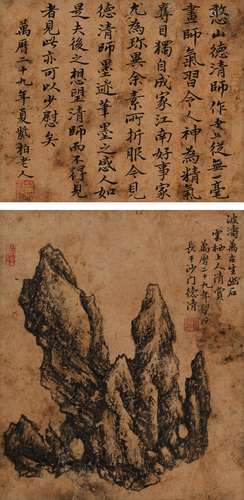 憨山德清師作從無毫
畫師氣習令人神為精氣
尊目獨自成家江南好事家
尤為珍異余素所折服今見
德清師墨迹筆墨之感人如
是夫後之想望清師而不得見
者見此亦可以少慰矣
萬曆二十九年夏紫柏老人
波濤萬古生幽石
雲栖上人清賞
萬曆二十九年
長干沙门德清